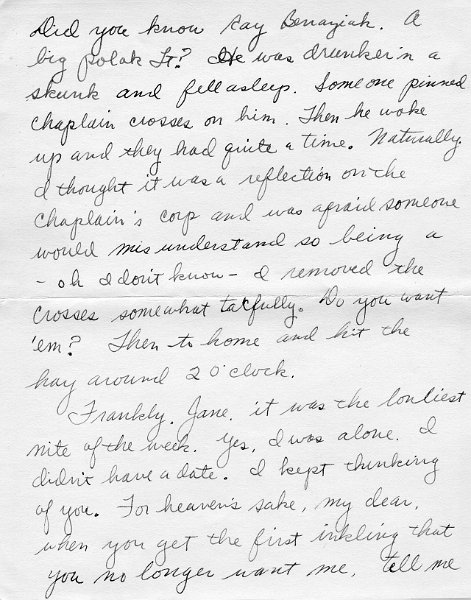 Did you know Ray Benaziah. A
big polak Lt? He was drunker'n a
skunk and fell asleep. Someone pinned
chaplain crosses on him. Then he woke
up and they had quite a time. Naturally.
I thought it was a reflection on the
Chaplain's corp and was afraid someone
would misunderstand so being a
- oh I don't know - I removed the
crosses somewhat tacfully. Do you want
'em? Then to home and hit the
hay around 2 o'clock.
Frankly, Jane, it was the lonliest
nite of the week. Yes, I was alone. I
didn't have a date. I kept thinking
of you. For heaven's sake, my dear,
when you get the first inkling that
you no longer want me, tell me